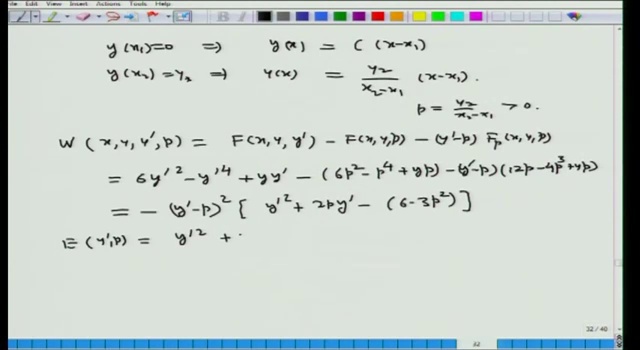 File Edit View Insert Actions Tools Help
y(x₁)=0 ⇒ y(x) = C (x-x₁)
y(x₂)=y₂ ⇒ y(x) = y₂/(x₂-x₁) (x-x₁).
p = y₂/(x₂-x₁) > 0.
W (x, y, y', p) = F(x, y, y') - F(x, y, p) - (y'-p) Fₚ(x, y, p)
= 6y'² - y'⁴ + yy' - (6p² - p⁴ + yp) - (y'-p)(12p - 4p³ + yp)
= - (y'-p)² [ y'² + 2py' - (6-3p²) ]
E (y', p) = y'² +
32 / 40
32